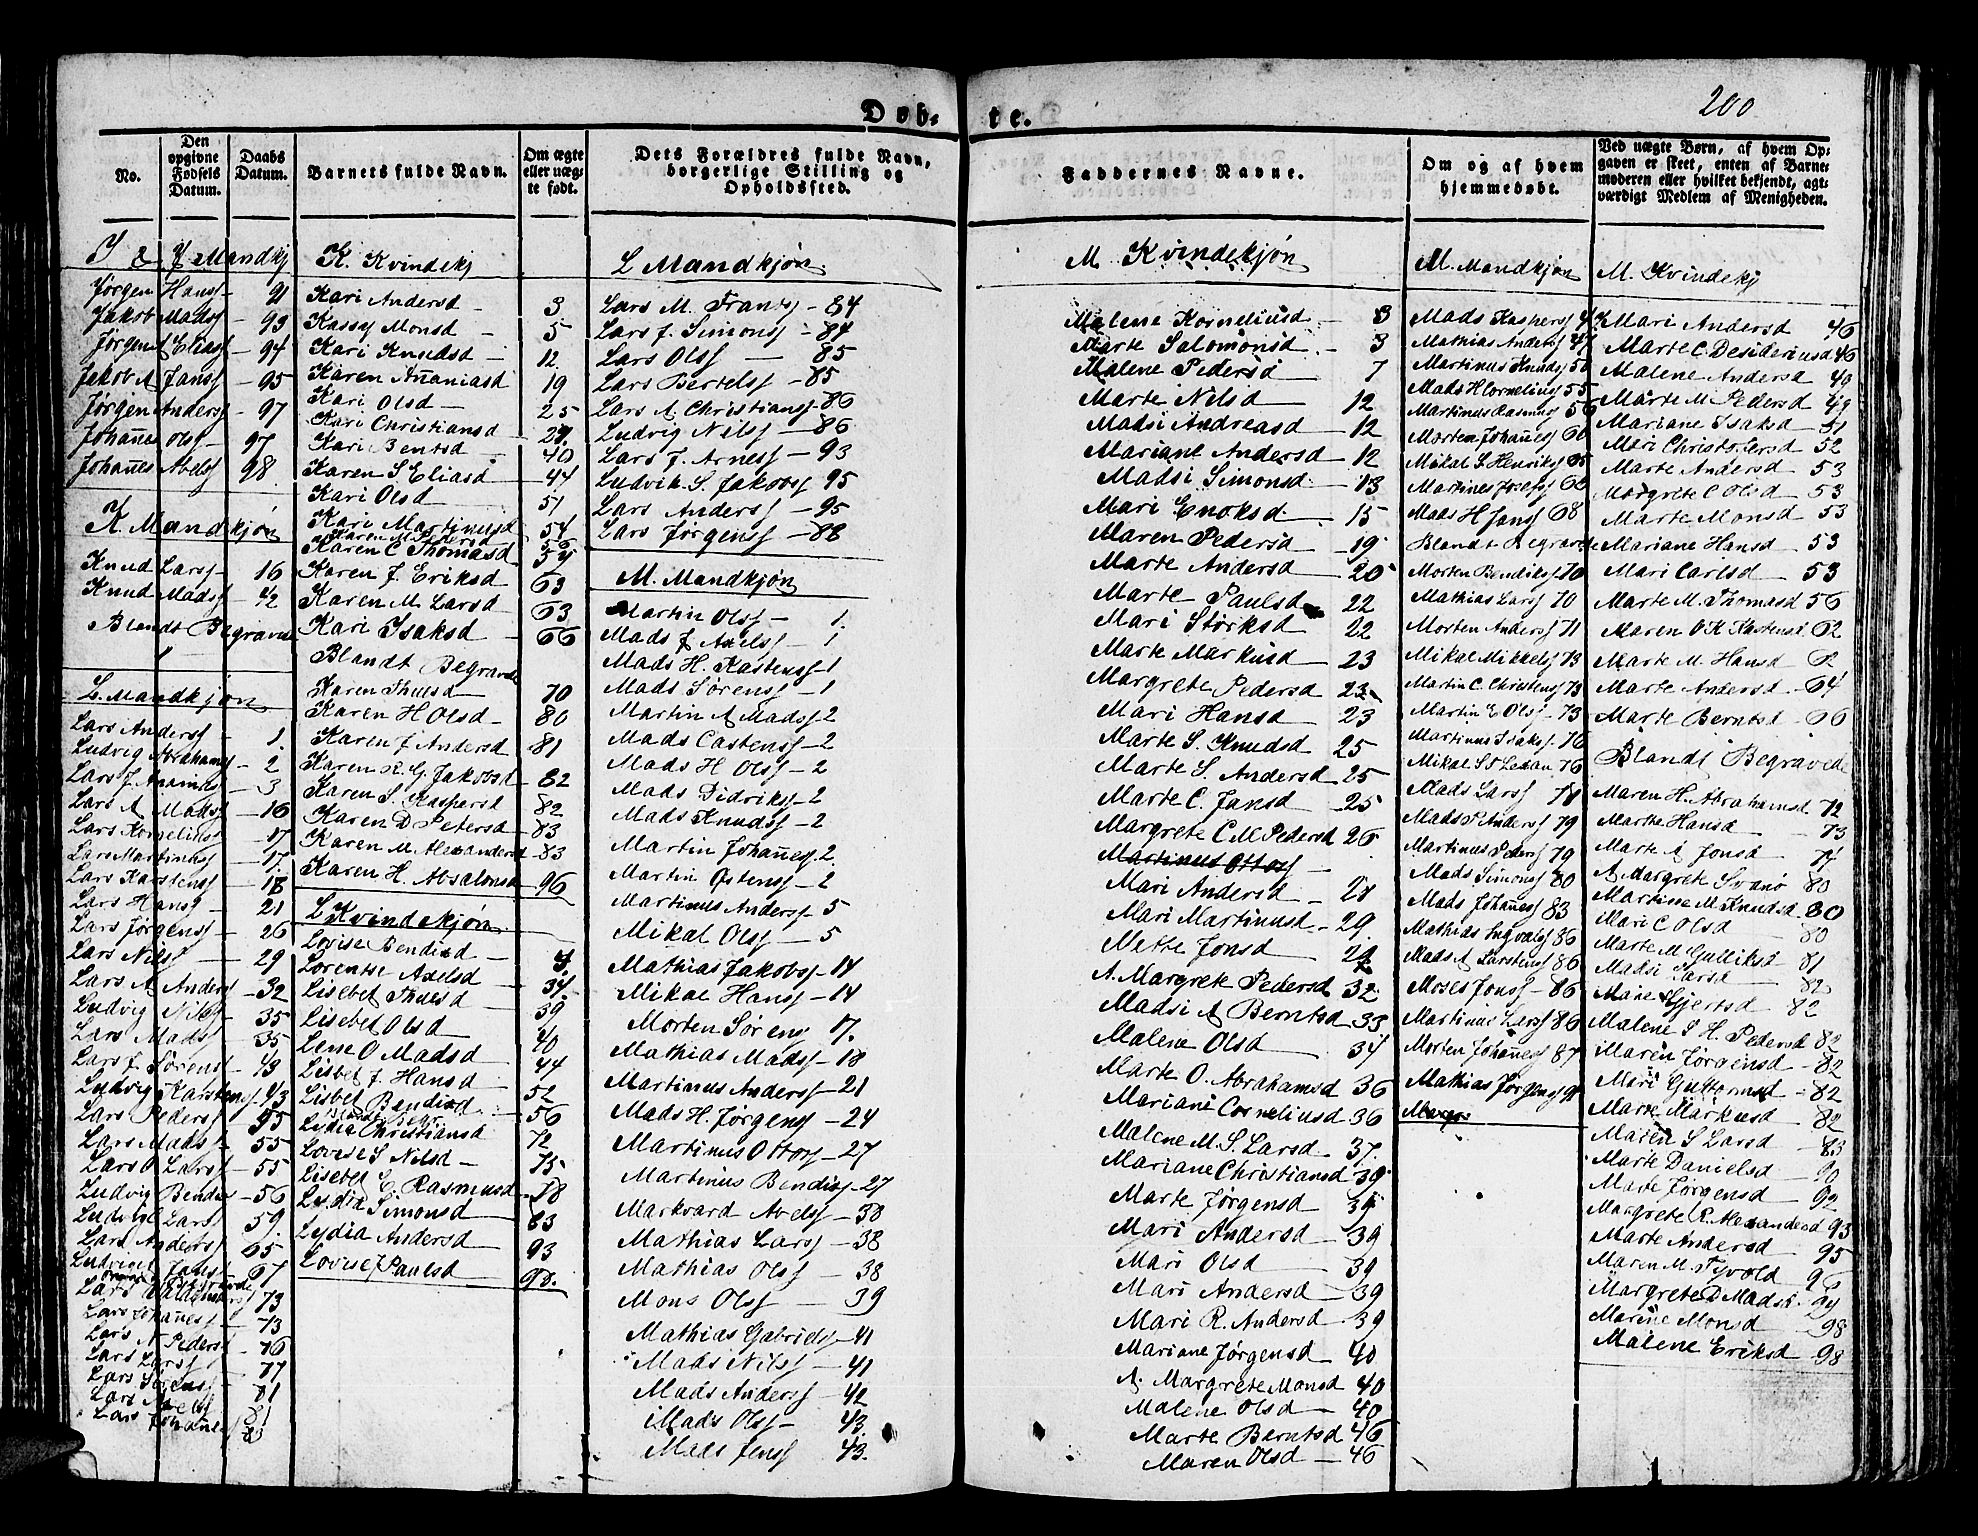 Døb-
te.
200
No.
Den opgivne Fødsels Datum.
Daabs Datum.
Barnets fulde Navn.
Om ægte eller uægte født.
Dets Forældres fulde Navn, borgerlige Stilling og Opholdssted.
Faddernes Navne.
Om og af hvem hjemmedøbt.
Ved uægte Børn, af hvem Opgaven er skeet, enten af Barnemoderen eller hvilket bekjendt, agtværdigt Medlem af Menigheden.
I & J Mandkj
Jørgen Hansf - 91
Jakob Madsf - 93
Jørgen Eliasf - 94
Jakob A Jansf - 95
Jørgen Andersf - 97
Johañes Olsf - 97
Johañes Abelsf 98
K Mandkjøn
Knud Larsf - 16
Knud Madsf - 42
Blandt Begravne
"
L. Mandkjøn
Lars Andersf - 1.
Ludvig Abrahamsf - 2
Lars J. - 3
Lars A Madsf - 16
Lars Korneliusf - 17
Lars Martinusf - 17.
Lars Karstensf - 18
Lars Hansf - 21
Lars Jørgensf - 26
Lars Nilsf - 29
Lars A Andersf - 32
Ludvig Nilsf - 35
Lars Madsf - 35
Lars J. Sørensf - 43
Ludvig Karstensf 43
Lars Pedersf - 55
Lars Madsf - 55
Lars O Larsf - 55
Ludvig - 56
Lars - 59.
Lars Andersf - 65
Jansf - 67
Lars - 73
Lars Johañesf - 73
Lars N Pedersf - 76
Lars Larsf - 77
Lars Sørensf - 81
Lars 81
Lars Johañesf
K. Kvindekj
Kari Andersd - 3
Kassy Monsd - 5
Kari Knudsd - 12
Karen Añaniasd 19
Kari Olsd - 25
Kari Christiansd - 27.
Kari Bentsd - 40
Karen S Eliasd - 44
Kari Olsd - 51
Kari Martinusd 54
Karen M. Pedersd 56
Karen C Thomasd 59
Karen J. Eriksd 63
Karen M. Larsd - 63
Kari Isaksd - 66
Blandt Begravde
Karen Thuesd - 70
Karen H Olsd - 80
Karen J Andersd 81
Karen R. G. Jakobsd - 82
Karen S. Kaspersd 82
Karen D Petersd - 83
Karen M. Alexandersd - 83
Karen H. Absalonsd 96
L Kvindekjøn
Lovise Bendisd - 4.
Lorentse Axelsd - 34.
Lisebet Thuesd - 39
Lisebet Olsd - 40
Lene O Madsd - 44
Lisbet J Hansd - 52
Lisbet Bendisd - 56
Lydia Christiansd 72
Lovise S Nilsd - 75
Lisebet E. Rasmusd - 78
Lydia Simonsd - 83
Lydia Andersd 93
Lovise J Paulsd
L Mandkjøn
Lars M. Frantsf - 84
Lars J. Simonsf - 84
Lars Olsf - 85
Lars Bertelsf - 85
Lars A. Christiansf - 86
Ludvig Nilsf - 86
Lars J. Arnesf - 93
Ludvik S. Jakobsf 95
Lars Andersf - 95
Lars Jørgensf - 88
M. Mandkjøn
Martin Olsf - 1.
Mads J Axelsf - 1
Mads H. Kastensf - 1
Mads Sørensf - 1
Martin A Madsf - 2
Mads Castensf - 2
Mads H Olsf - 2
Mads Didriksf - 2
Mads Knudsf - 2
Martin Johañesf 2.
Martin Ostensf - 2
Martinus Andersf - 5
Mikal Olsf - 5
Mathias Jakobsf - 14
Mikal Hansf - 14
Morten Sørens 17.
Mathias Madsf - 18
Martinus Andersf - 21
Mads H. Jørgensf - 24
Martinus Ottosf - 27
Martinus Bendisf - 27
Markvard Abelsf - 38
Mathias Larsf - 38
Mathias Olsf - 38
Mons Olsf - 39
Mathias Gabrielsf - 41
Mads Nilsf - 41
Mads Andersf - 42
Mads Olsf - 43.
Mads Jensf 43.
M. Kvindekjøn
Malene Korneliusd - 3
Marte Salomonsd. - 3
Malene Pedersd 7
Marte Nilsd - 12
Madsi Andreasd - 12
Mariane Andersd - 12
Madsi Simonsd - 13
Mari Enoksd - 15
Maren Pedersd - 19
Marte Andersd - 20
Marte Paulsd 22
Mari Størksd - 22
Marte Markusd - 23
Margrete Pedersd 23
Mari Hansd - 23
Marte S. Knudsd 25
Marte S. Andersd - 25
Marte C. Jansd - 25
Margrete C. M Pedersd - 26
Martinus Ottosf -
Mari Andersd - 28
Mari Martinusd - 29
Mette Jonsd - 29
A. Margrete Pedersd 32
Madsi A Berntsd - 33
Malene Olsd - 34
Marte O. Abrahamsd 36
Mariane Corneliusd 36
Malene M. S. Larsd - 37.
Mariane Christiansd 39
Marte Jørgensd - 39
Mari Andersd - 39
Mari Olsd - 39
Mari Andersd - 39
Mari R. Andersd - 39
Mariane Jørgensd - 40
A. Margrete Monsd 40
Malene Olsd - 40
Marte Berntsd 46
Maren Olsd - 46
M. Mandkjøn
Mads Kaspersf 4
Mathias Andersf 47
Martinus Knudsf 50
Mads H Cornelius 55
Martinus Rasmusf 56
Morten Johañesf 60
Mikal S. Henriksf 65
Martines Josefsf 68
Mads H Jansf 68
Blandt Begravde
Morten Bendiksf 70
Mathias Larsf 70
Morten Andersf 71
Mikal Mikkelsf 73
Martin C. Christensf 73
Martin E Olsf - 73
Martinus Isaksf 76
Mikal S 76
Mads Larsf 78
Mads P. Andersf 79
Martinus Pedersf 79
Mads Simonsf 80
Mads Johañesf 83
Mathias Ingvalsf 86
Mads A Larstensf 86
Moses Jonsf - 86
Martinus Larsf 86
Morten Johañesf 87
Mathias Jørgensf 91
M. Kvindekj
Mari Andersd - 46
Marte C. Desideriusd 46
Malene Andersd 49
Marte M. Pedersd 49
Mariane Isaksd - 51
Mari Christofersd 52
Marte Andersd 53
Margrete C Olsd 53
Marte Monsd 53
Mariane Hansd 53
Mari Carlsd - 53
Marte M. Thomasd 56
Maren O K Kastensd 62
Marte M. Hansd - 62
Marte Andersd - 64
Marte Berntsd - 66
Blandt Begravede
Maren H. Abrahamsd. 72
Marthe Hansd - 73
Marte A Jonsd - 74
A Margrete Svanø 80
Martine M. Knudsd 80
Mari C Olsd 80
Marte M Gulliksd 81
Madsi Larsd 82
Marie Gjertsd 82
Malene S. H. Pedersd 82
Maren Jørgensd - 82
Mari Guttormsd - 82
Marte Markusd 82
Maren S Larsd - 83
Marte Danielsd 90
Marte Jørgensd - 92
Margrete R. Alexandersd 93
Marte Andersd - 95
Maren M. Tyvold 96
Margrete D Madsd
Marine Monsd - 98
Malene Eriksd - 98